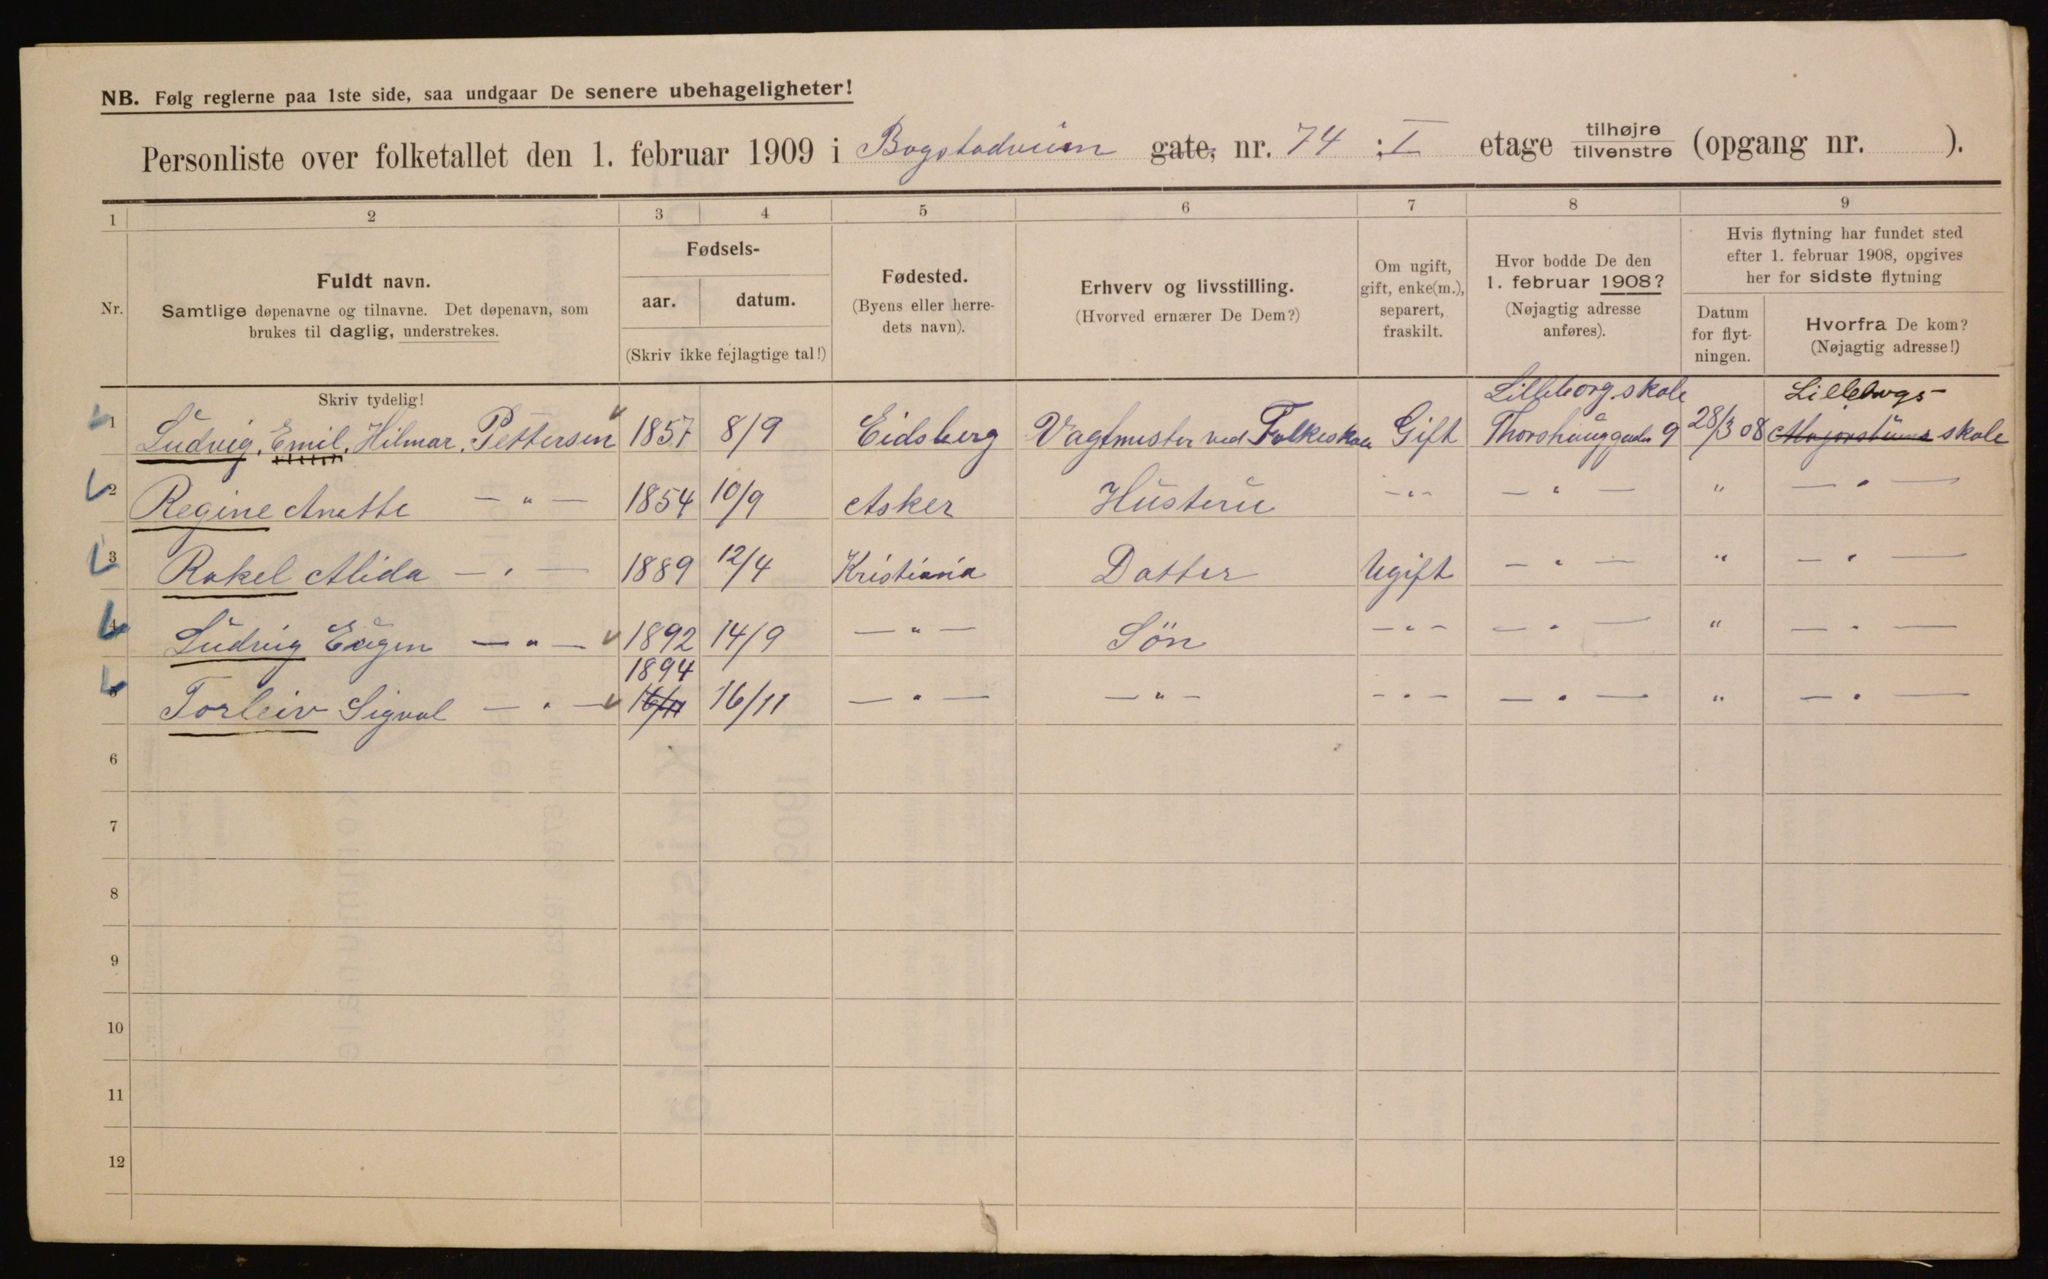 NB. Følg reglerne paa 1ste side, saa undgaar De senere ubehageligheter!
Personliste over folketallet den 1. februar 1909 i Bogstadveien gate, nr. 74 : I etage tilhøjre tilvenstre (opgang nr. ).
1 2 3 4 5 6 7 8 9
Nr.
Fuldt navn.
Samtlige døpenavne og tilnavne. Det døpenavn, som
brukes til daglig, understrekes.
Fødsels-
aar. datum.
(Skriv ikke fejlagtige tal!)
Fødested.
(Byens eller herre-
dets navn).
Erhverv og livsstilling.
(Hvorved ernærer De Dem?)
Om ugift,
gift, enke(m.),
separert,
fraskilt.
Hvor bodde De den
1. februar 1908?
(Nøjagtig adresse
anføres).
Hvis flytning har fundet sted
efter 1. februar 1908, opgives
her for sidste flytning
Datum
for flyt-
ningen.
Hvorfra De kom?
(Nøjagtig adresse!)
Skriv tydelig!
Lilleborg skole Lilleborgs-
1 Ludvig. Emil. Hilmar. Pettersen 1857 8/9 Eidsberg Vagtmester ved Folkeskole Gift Thorshauggaden 9 28/3 08 Majorstuens skole
2 Regine Anette — " — 1854 10/9 Asker Hustru - " - — " — " — " —
3 Rakel Alida — " — 1889 12/4 Kristiania Datter Ugift — " — " — " —
4 Ludvig Eugen — " — 1892 14/9 — " — Søn - " - — " — " — " —
1894
5 Torleiv Sigval — " — 16/11 16/11 — " — — " — - " - — " — " — " —
6
7
8
9
10
11
12